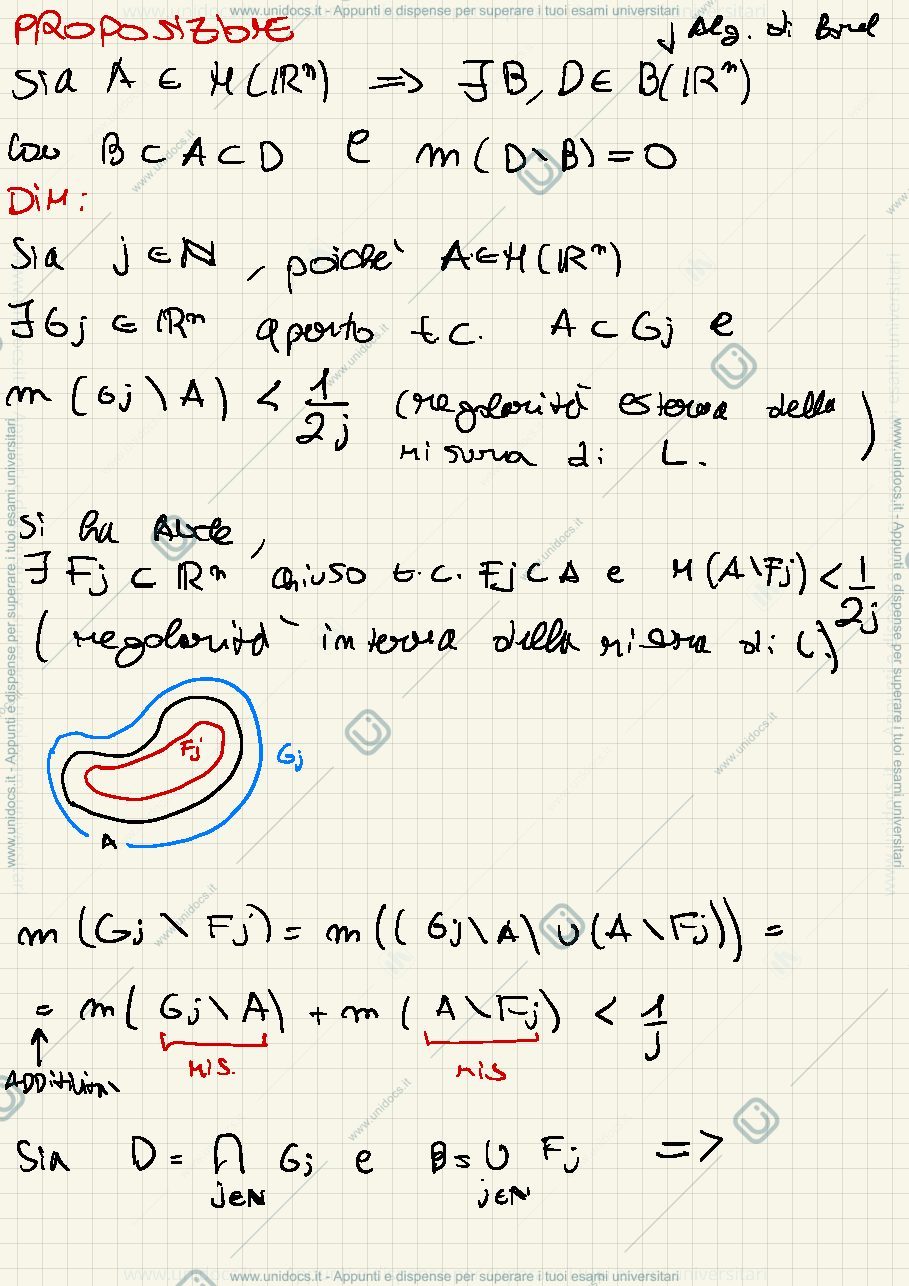 www.unidocs.it - Appunti e dispense per superare i tuoi esami universitari
PROPOSIZIONE
↓ Alg. di Borel
Sia A ∈ M(ℝⁿ) => ∃ B, D ∈ B(ℝⁿ)
Con B ⊂ A ⊂ D e m(D∖B) = 0
DIM:
Sia j ∈ ℕ, poiché A ∈ M(ℝⁿ)
∃ Gj ⊂ ℝⁿ aperto t.c. A ⊂ Gj e
m(Gj \ A) < 1/2j (regolarità esterna della misura di L.)
Si ha anche,
∃ Fj ⊂ ℝⁿ chiuso t.c. Fj ⊂ A e M(A\Fj) < 1/2j
(regolarità interna della misura di L.)
Fj
Gj
A
m(Gj \ Fj) = m((Gj\A) ∪ (A\Fj)) =
= m(Gj\A) + m(A\Fj) < 1/j
↑ MIS. MIS
Sia D = ⋂ Gj e B = ∪ Fj =>
j∈N j∈N
www.unidocs.it - Appunti e dispense per superare i tuoi esami universitari